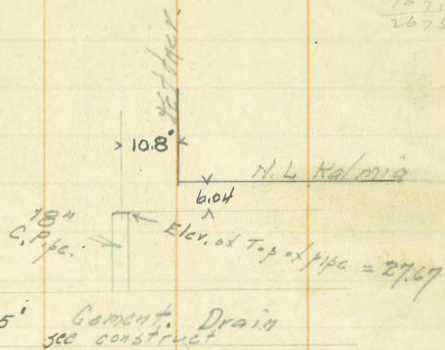 2675
10.8'
N. L. Kalmia
6.04
18"
C. Pipe.
Elev. of Top of pipe = 27.67
5' Cement. Drain
see construct